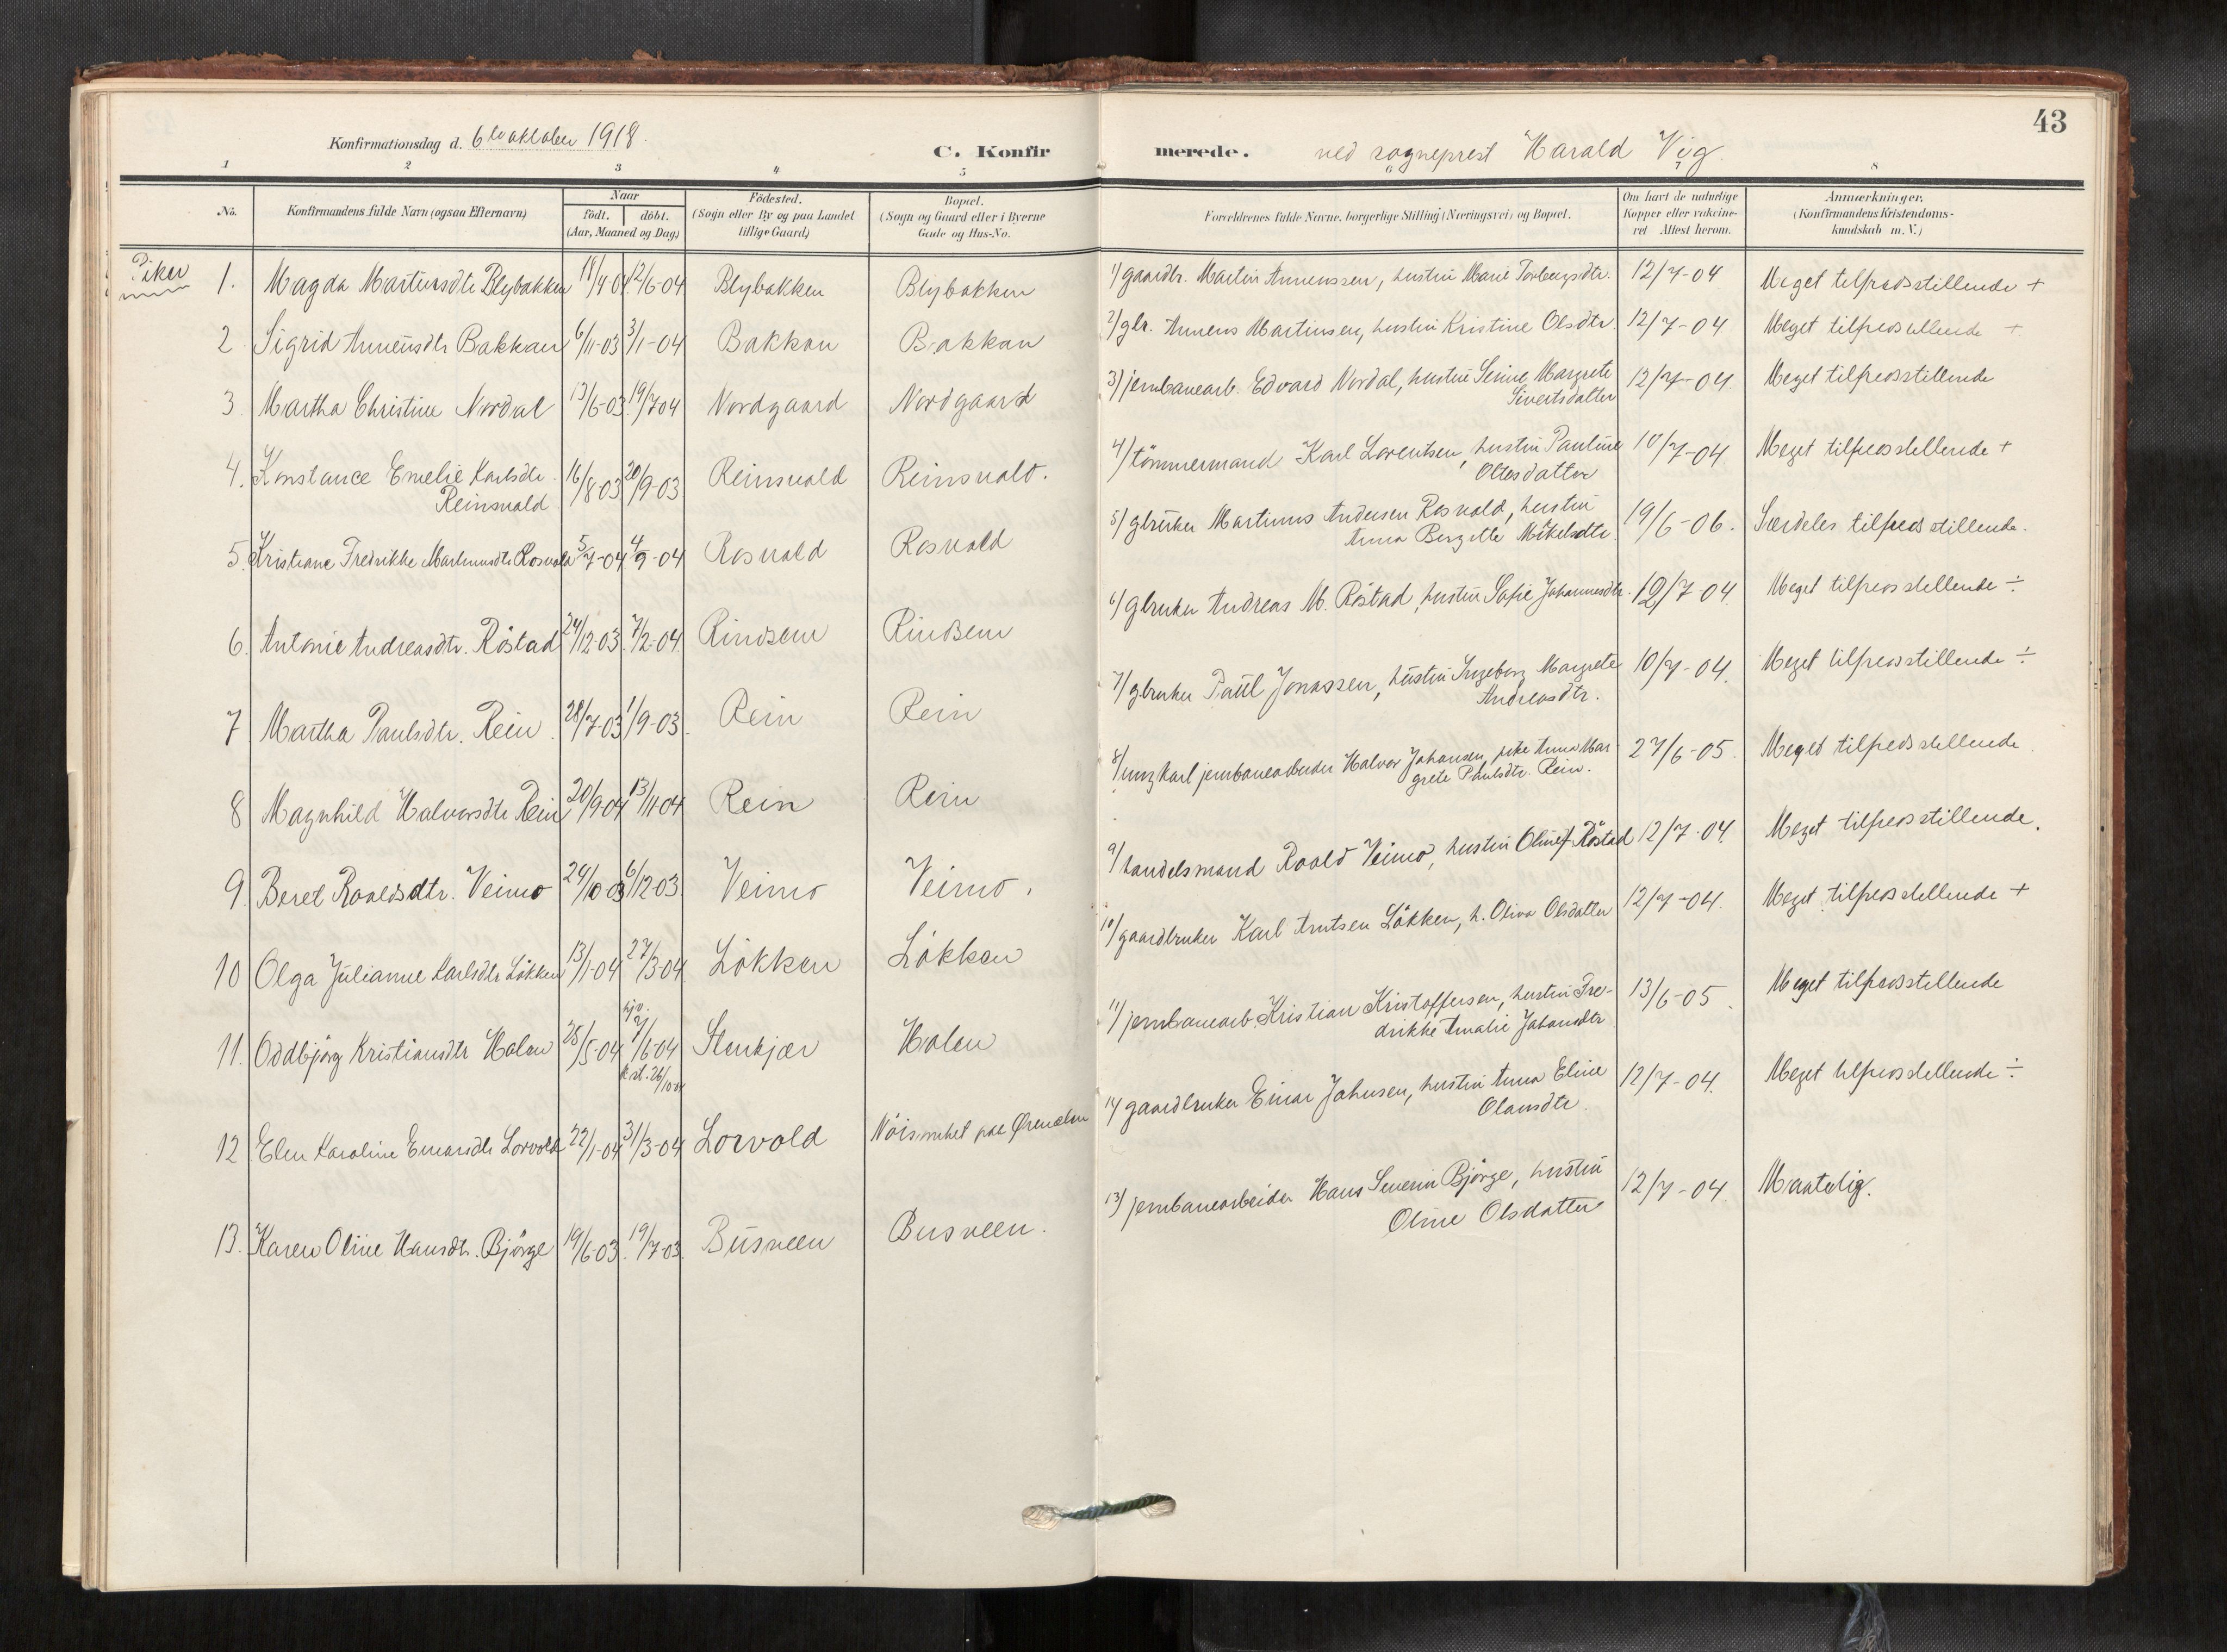 43
Konfirmationsdag d. 6te oktober 1918.
C. Konfirmerede. ved sogneprest Harald Vig.
1 2 3 4 5 6 7 8
No.
Konfirmandens fulde Navn (ogsaa Efternavn)
Naar
födt. döbt.
(Aar, Maaned og Dag)
Födested.
(Sogn eller By og paa Landet
tillige Gaard)
Bopæl.
(Sogn og Gaard eller i Byerne
Gade og Hus-No.
Forældrenes fulde Navne, borgerlige Stilling (Næringsvei) og Bopæl.
Om havt de naturlige
Kopper eller vakcine-
ret Attest herom.
Anmærkninger.
(Konfirmandens Kristendoms-
kundskab m. V.)
Piker
1. Magda Martinsdtr Blybakken 18/4-04 12/6-04 Blybakken Blybakken 1/ gaardbr. Martin Annenssen, hustru Marie Torbergsdtr. 12/7-04 Meget tilfredsstillende +
2. Sigrid Anneusdtr Bakkan 6/11-03 3/1-04 Bakkan Bakkan 2/ gbr. Anneus Martinsen, hustru Kristine Olsdtr. 12/7-04 Meget tilfredsstillende +
3. Martha Christine Nordal 13/6-03 19/7 04 Nordgaard Nordgaard 3/ jernbanearb. Edvard Nordal, hustru Margrete
Sivertsdatter 12/7-04 Meget tilfredsstillende
4. Konstance Emelie Karlsdtr.
Reinsvald 16/8-03 20/9-03 Reinsvald Reinsvald. 4/ tömmermand Karl Lorentsen, hustru Pauline
Ottesdatter 10/7-04 Meget tilfredsstillende +
5. Kristiane Fredrikke Martinusdtr Rosvold 5/7-04 4/9-04 Rosvald Rosvald 5/ gbruker Martinus Andersen Rosvald, hustru
Anna Bergitte Mikelsdtr. 19/6-06. Særdeles tilfredsstillende.
6. Antonie Andreasdtr. Röstad 24/12-03. 7/2-04 Rindsem Rindsem 6/ gbruker Andreas M. Röstad, hustru Sofie Johannesdtr. 12/7 04. Meget tilfredsstillende ÷
7. Martha Paulsdtr. Rein. 28/7-03 1/9-03. Rein Rein 7/ gbruker Paul Jonassen, hustru Ingeborg Margrete
Andreasdtr. 10/7-04. Meget tilfredsstillende ÷
8. Magnhild Halvorsdtr Rein 20/9-04 13/11-04 Rein Rein 8/ ungkarl jernbanearbeider Halvor Johansen, pike Anna Mar-
grete Paulsdtr. Rein. 27/6-05. Meget tilfredsstillende.
9. Beret Roaldsdtr. Veimo 24/10-03 6/12-03 Veimo Veimo. 9/ handelsmand Roald Veimo, hustru Oline f. Röstad 12/7-04. Meget tilfredsstillende.
10. Olga Julianne Karlsdtr Lökken 13/1-04 27/3-04 Lökken Lökken 10/ gaardbruker Karl Arntsen Lökken, h. Oliva Olsdatter 12/7-04. Meget tilfredsstillende +
11. Oddbjörg Kristiansdtr Halen 25/5-04 hjd. 7/6-04 k. st. 26/10-04 Stenkjær Halen 11/ jernbanearb. Kristian Kristoffersen, hustru Fre-
drikke Amalie Johansdtr. 13/6-05. Meget tilfredsstillende
12 Elen Karoline Einarsdtr Lorvold 22/1-04 31/3-04 Lorvold Nöisomhet paa 14/ gaardbruker Einar Johnsen, hustru Anna Eline
Olausdtr. 12/7-04. Meget tilfredsstillende ÷
13. Karen Oline Hansdtr. Bjørge 19/6-03. 19/7-03. Busveen Busveen. 13/ jernbanearbeider Hans Severin Bjørge, hustru
Oline Olsdatter 12/7-04. Maatelig.